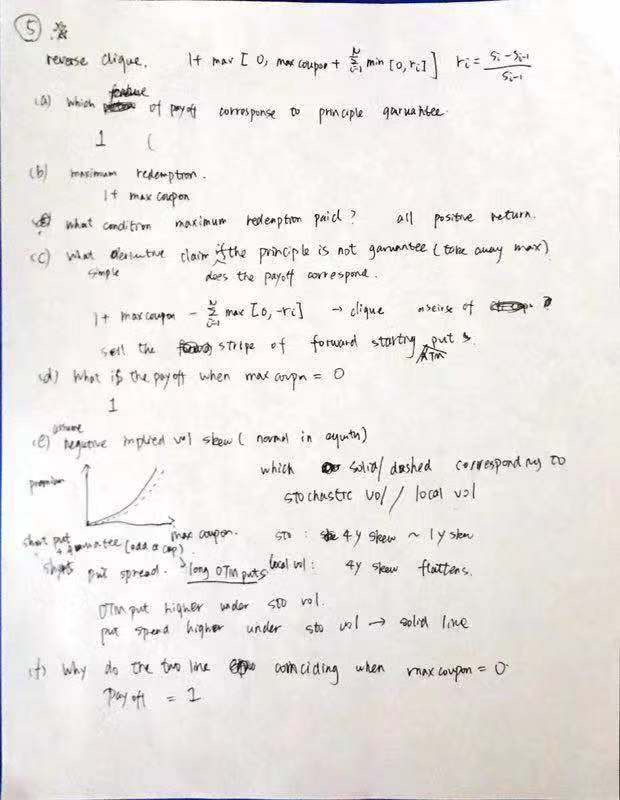 5
reverse clique. 1+ max [ 0, max coupon + Σ_{i=1}^{N} min [0, ri] ] ri = (Si - Si-1) / Si-1
(a) which feature of payoff corresponse to principle garuantee.
1 (
(b) maximum redemption.
1+ max coupon
what condition maximum redemption paid? all positive return.
(c) what derivative claim if the principle is not garuantee (take away max)
simple does the payoff correspond.
1+ max coupon - Σ_{i=1}^{N} max [0, -ri] → clique of
sell the stripe of forward starting put s
ATM
(d) What is the payoff when max coupn = 0
1
assume
(e) negative implied vol skew ( normal in equity)
which solid/ dashed corresponding to
premium
stochastic vol / local vol
max coupon.
sto : 4y skew ~ 1y skew
short put + guarantee (add a cap).
short put spread. → long OTM puts
local vol : 4y skew flattens.
OTM put higher under sto vol.
put spend higher under sto vol → solid line
(f) Why do the two line coinciding when max coupon = 0
Payoff = 1